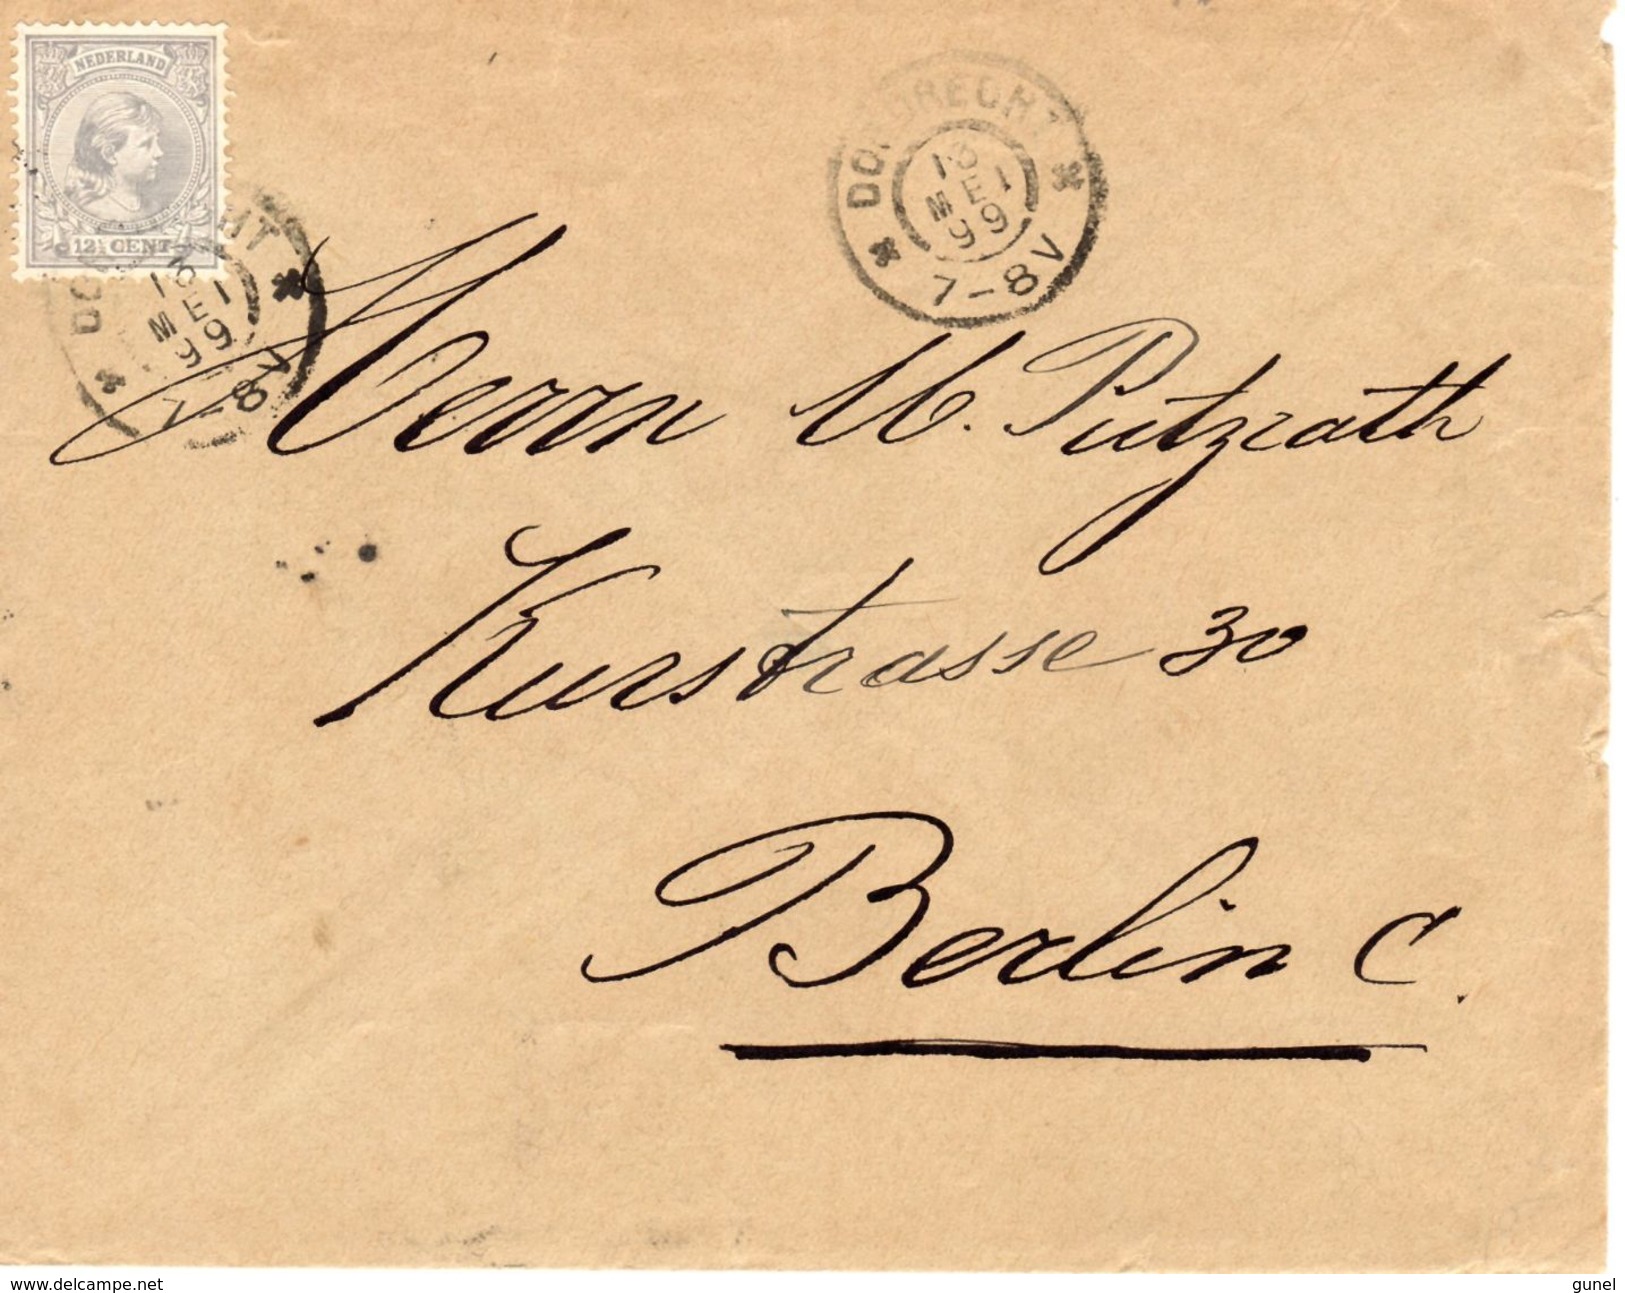 NEDERLAND
12½ CENT
DORDRECHT
13 MEI 99
7-8V
DORDRECHT
13 MEI 99
7-8V
Herrn M. Putzrath
Kurstrasse 30
Berlin C.
delcampe.net
gunel